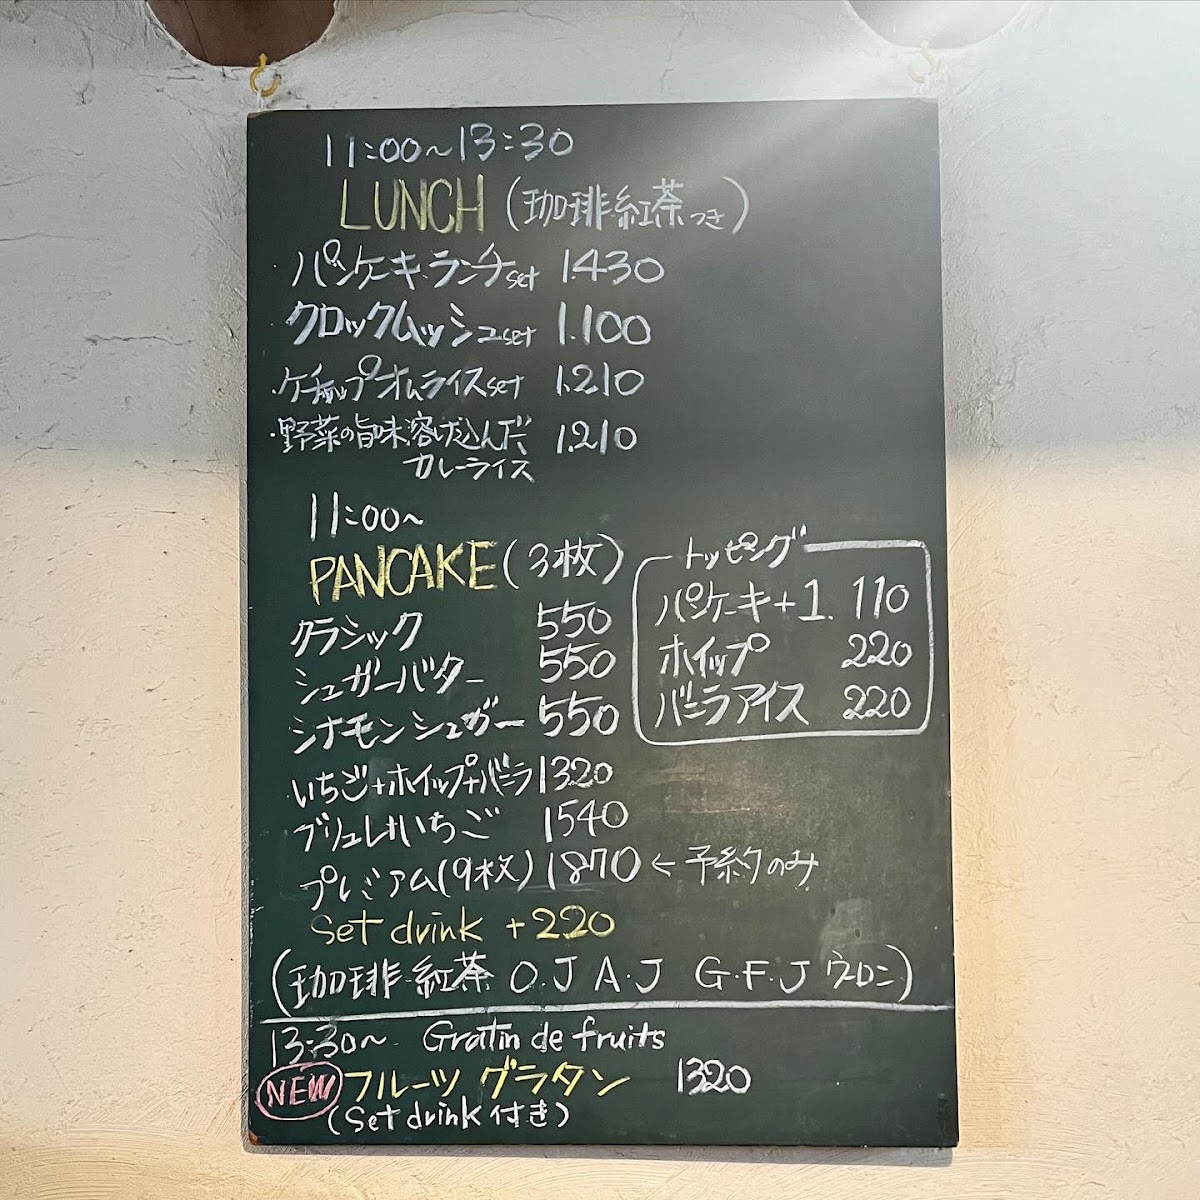 11:00~13:30
LUNCH (珈琲・紅茶つき)
パンケーキ・ランチset 1.430
クロックムッシュset 1.100
・ケチャップオムライスset 1.210
・野菜の旨味溶けこんだ 1.210
カレーライス
11:00~
PANCAKE (3枚)
クラシック 550
シュガーバター 550
シナモンシュガー 550
いちご+ホイップ+バニラ 1320
ブリュレ+いちご 1540
プレミアム(9枚) 1870 ← 予約のみ
トッピング
パンケーキ+1. 110
ホイップ 220
バニラアイス 220
Set drink +220
(珈琲・紅茶 O.J A.J G.F.J ウーロン)
13:30~ Gratin de fruits
NEW フルーツ グラタン 1320
(Set drink 付き)